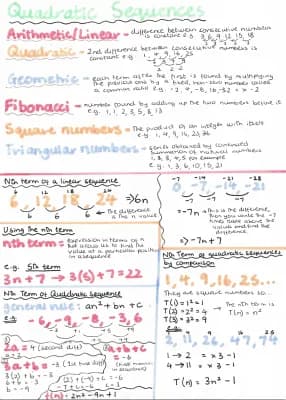 Quadratic Sequences
Arithmetic/Linear - difference between consecutive numbers
is constant e.g. 3, 6, 9, 12, 15, 18
Quadratic - 2nd difference between consecutive numbers is
constant e.g. 1, 4, 9, 16, 25
Geometric - each term after the first is found by multiplying
the previous one by a fixed, non-zero number called
a common ratio e.g. -2, 4, -8, 16, -32 = x -2
Fibonacci - number found by adding up the two numbers before it
e.g. 1, 1, 2, 3, 5, 8, 13
Square numbers - The product of an integer with itself
e.g. 1, 4, 9, 16, 25, 36
Triangular numbers - series obtained by continued
summation of natural numbers
1, 2, 3, 4, 5 for example
e.g. 1, 3, 6, 10, 15, 21
Nth term of a linear sequence
6 12 18 24
6, 12, 18, 24 => 6n
6 6 6 The difference
is the n value
Using the nth term
nth term = expression in terms of n
that allows us to find the
value at a particular position
in a sequence
e.g. 5th term
3n + 7 → 3(5) + 7 = 22
Nth Term of Quadratic Sequence
general rule: an² + bn + c
e.g.
-6, -9, -8, -3, 6
2a = 4 (second diff)
a = 2
3a + b = -3 (1st two diff)
3(2) + b = -3
6 + b = -3
b = -9
a + b + c = -6
(2) + (-9) + c = -6
-7 + c = -6
T(n) = 2n² - 9n + 1
-7 -14 -21 -28
0, -7, -14, -21
= -7n + this is the difference,
then you write the -7
times table above the
values and find the
difference
→ -7n + 7
Nth Term of quadratic sequences
by comparison
1, 4, 9, 16, 25...
They are square numbers so...
T(1) = 1² = 1
T(2) = 2² = 4
T(3) = 3² = 9
→ The nth term is
T(n) = n²
e.g.
2, 11, 26, 47, 74
1 → 2 = x 3 - 1
4 → 11 = x 3 - 1
T(n) = 3n² - 1